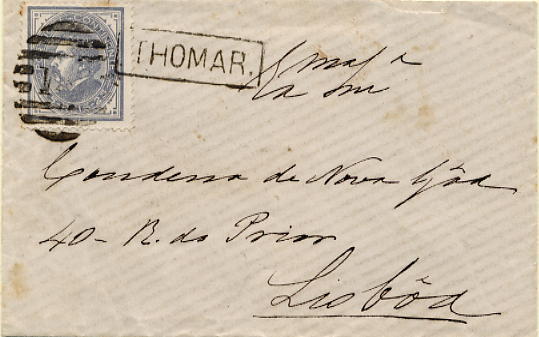 THOMAR.
Exmª
Condessa de Nova Gôa
40 - R. do Prior
Lisbôa